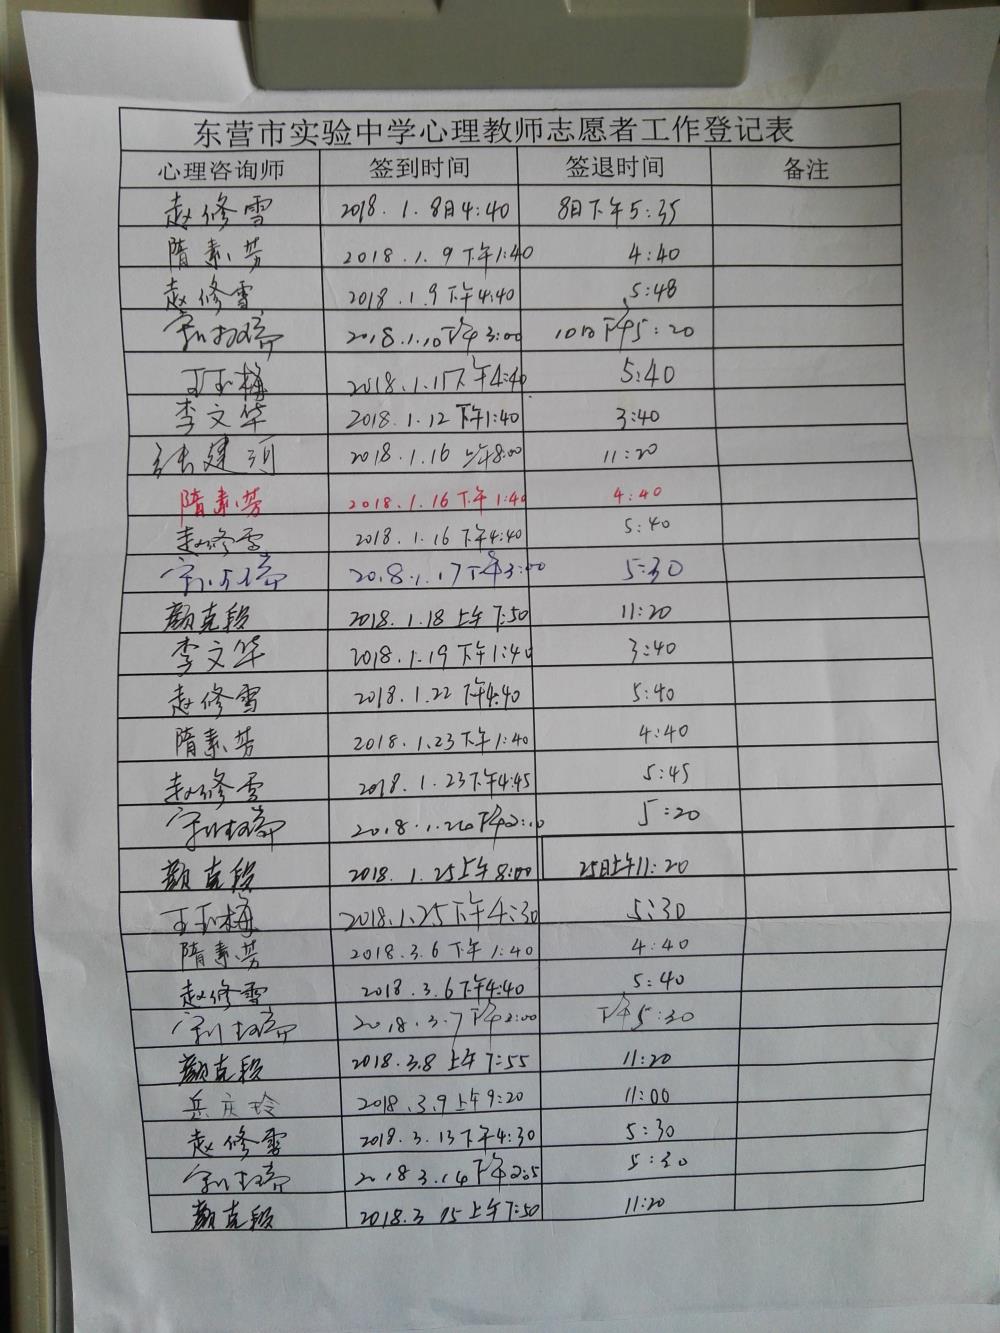 东营市实验中学心理教师志愿者工作登记表
心理咨询师 签到时间 签退时间 备注
赵修雪 2018.1.8日4:40 8日下午5:35
隋素芳 2018.1.9下午1:40 4:40
赵修雪 2018.1.9下午4:40 5:48
2018.1.10下午3:00 10日下午5:20
王玉梅 2018.1.15下午4:40 5:40
李文华 2018.1.12下午1:40 3:40
张建河 2018.1.16上午8:00 11:20
隋素芳 2018.1.16下午1:40 4:40
赵修雪 2018.1.16下午4:40 5:40
2018.1.17下午3:00 5:30
颜克段 2018.1.18上午7:50 11:20
李文华 2018.1.19下午1:40 3:40
赵修雪 2018.1.22下午4:40 5:40
隋素芳 2018.1.23下午1:40 4:40
赵修雪 2018.1.23下午4:45 5:45
5:20
颜克段 2018.1.25上午8:00 25日上午11:20
王玉梅 2018.1.25下午4:30 5:30
隋素芳 2018.3.6下午1:40 4:40
赵修雪 2018.3.6下午4:40 5:40
2018.3.7下午2:00 下午5:30
颜克段 2018.3.8上午7:55 11:20
岳庆玲 2018.3.9上午9:20 11:00
赵修雪 2018.3.13下午4:30 5:30
2018 3.14下午 5:30
颜克段 2018.3 15上午7:50 11:20